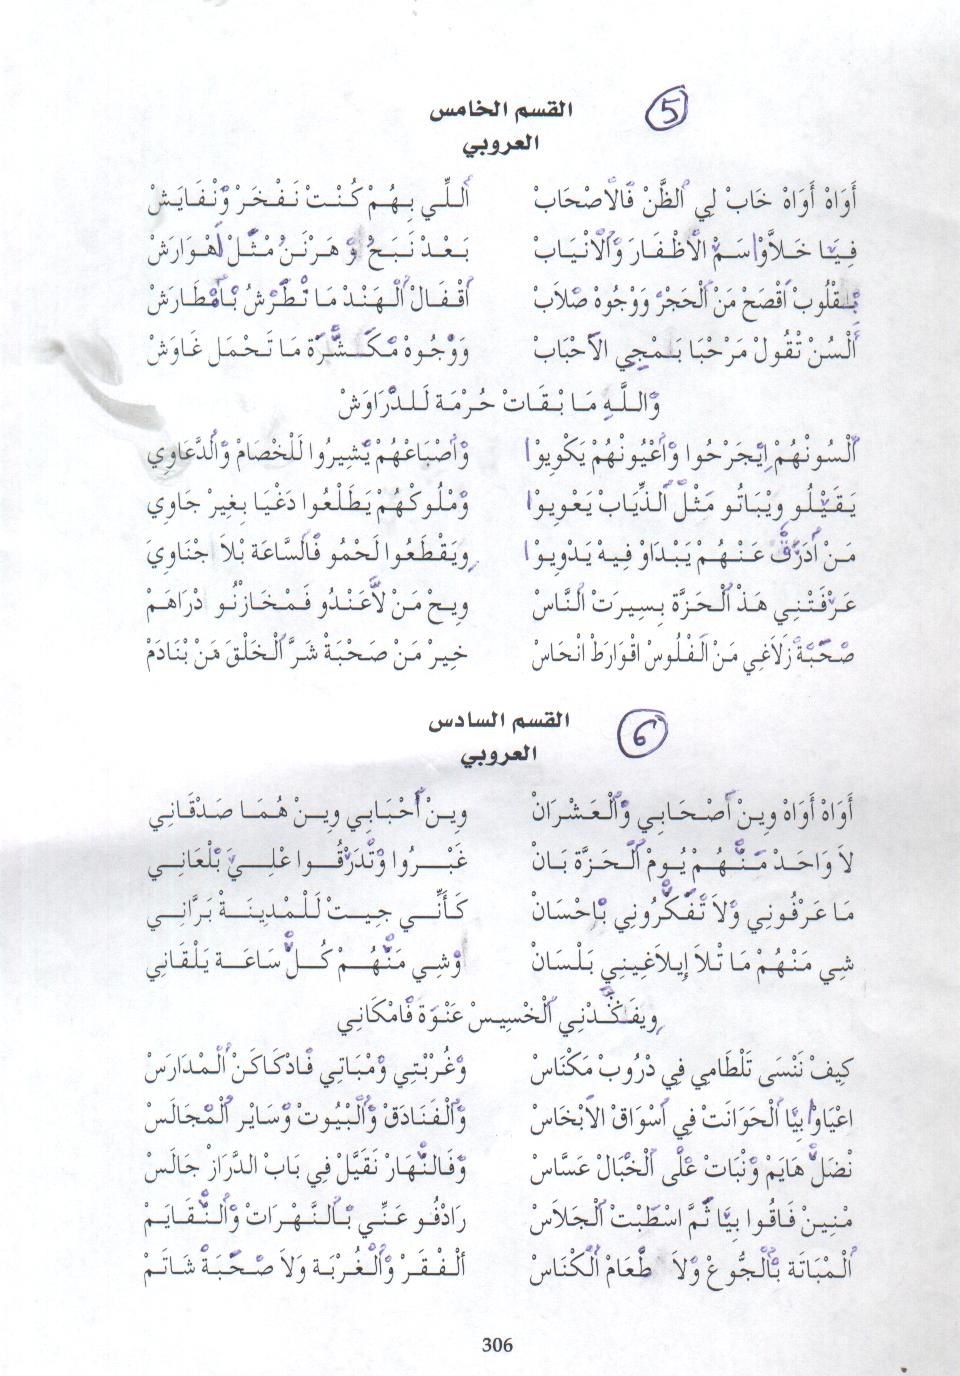 5
القسم الخامس
العروبي
أَوَاهْ أَوَاهْ خَابْ لِي الظَّنْ فَالاَصْحَابْ    اَللِّي بِهُمْ كُنْتْ نَفْخَرْ وَنْفَايَشْ
فِيَّا خَلاَّوْا سَمّْ الاَظْفَارْ وَالاَنْيَابْ    بَعْدْ نَبَحْ وْ هَرْنَنُ مْثَلْ اهْوَارَشْ
بَقْلُوبْ اَقْصَحْ مَنْ الْحَجْرْ وَوْجُوهْ صْلاَبْ    اَقْفَالْ الْهَنْدْ مَا تْطَرَّشُ بَامْطَارَشْ
اَلْسُنْ تْقُولْ مَرْحْبَا بَمْجِي الاَحْبَابْ    وَوْجُوهْ مْكَشّْرَة مَا تَحْمَلْ غَاوَشْ
وَاللَّهِ مَا بْقَاتْ حُرْمَة لَلدْرَاوَشْ
اَلْسُونْهُمْ إِيْجَرْحُوا وَاْعْيُونْهُمْ يَكْوِيوْا    وَاْصْبَاعْهُمْ يْشِيرُوا لَلْخْصَامْ وَالْدَّعَاوِي
يَقَيْلُو وِيْبَاتُو مَثْلْ الذِّيَابْ يَعْوِيوْا    وَمْلُوكْهُمْ يَطْلْعُوا دَغْيَا بِغِيرْ جَاوِي
مَنْ اَدْرَقْ عَنْهُمْ يَبْدَاوْ فِيهْ يَدْوِيوْا    وِيَقْطْعُوا لَحْمُو فَالسَّاعَة بْلاَ جْنَاوِيَ
عَرْفَتْنِي هَذْ الْحَزَّة بِسِيرَتْ النَّاسْ    وِيحْ مَنْ لاَّعَنْدُو فَمْخَازْنُو دْرَاهَمْ
صْحْبَةْ زْلاَغِي مَنْ الَفْلُوسْ اقْوَارَطْ انْحَاسْ    خِيرْ مَنْ صَحْبَةْ شَرَّ الْخَلْقَ مَنْ بْنَادَمْ
6
القسم السادس
العروبي
أَوَاهْ أَوَاهْ وِينْ اَصْحَابِي وَالْعَشْرَانْ    وِينْ اَحْبَابِي وِينْ هُمَا صَدْقَانِي
لاَ وَاحَدْ مَنّْهُمْ يُومْ الْحَزَّة بَانْ    غَبْرُوا وَتْدَرّْقُوا عْلِيَ بْلَعَانِي
مَا عَرْفُونِي وْلاَ تْفَكّْرُونِي بِاحْسَانْ    كَأَنِّي جِيتْ لَلْمْدِينَة بَرَّانِي
شِي مَنْهُمْ مَا تْلاَ إِيلاَغِينِي بَلْسَانْ    وَشِي مَنّْهُمْ كُلّْ سَاعَة يَلْقَانِي
وِيفَكّْدْنِي الْخْسِيسْ عَنْوَة فَامْكَانِي
كِيفْ نَنْسَى تَلْطَامِي فِي دْرُوبْ مَكْنَاسْ    وَغُرْبْتِي وَمْبَاتِي فَادْكَاكَنْ الْمْدَارَسْ
اعْيَاوْا بِيَّا الْحَوَانَتْ فِي اَسْوَاقْ الاَبْخَاسْ    وَالْفَنَادَقْ وَالْبْيُوتْ وَسَايْر الْمْجَالَسْ
نْضَلّْ هَايَمْ وَنْبَاتْ عْلَى الْخْبَالْ عَسَّاسْ    وَفَالنّْهَارْ نَقَيَّلْ فِي بَابْ الدَّرَازْ جَالَسْ
مْنِينْ فَاقُوا بِيَّا ثَمَّ اسْطَبْتْ الْجَلاَسْ    رَادْفُو عَنِّي بَالنَّهْرَاتْ وَالنّْقَايَمْ
اَلْمْبَاتَة بَالْجُّوعْ وْلاَ طْعَامْ الْكْنَاسْ    اَلْفْقَرْ وَالْغُرْبَة وَلاَ صْحْبَةْ شَاتَمْ
306